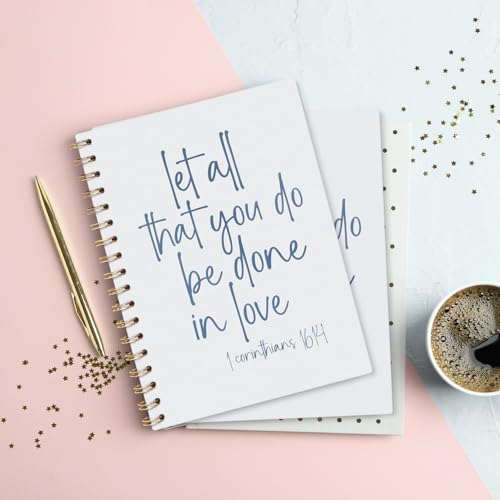 let all
that you do
be done
in love
1 corinthians 16:14
do
e